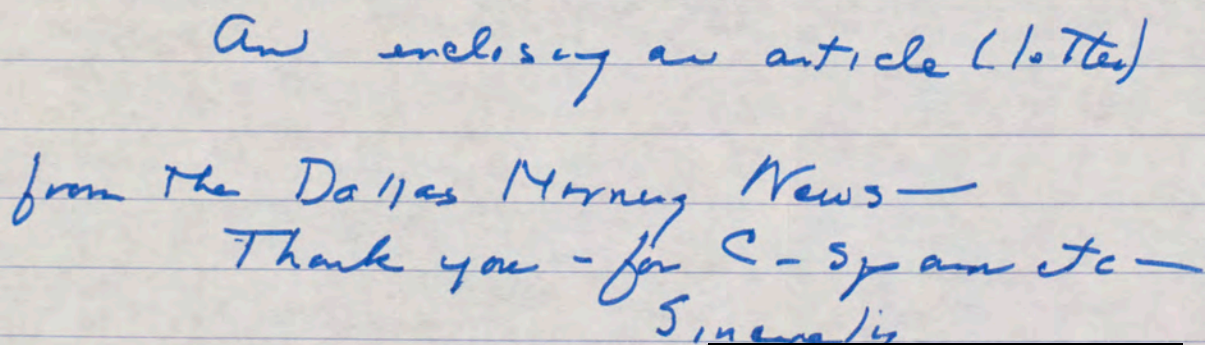 Am enclosing an article (letter)
from the Dallas Morning News—
Thank you - for C-Span etc—
Sincerely